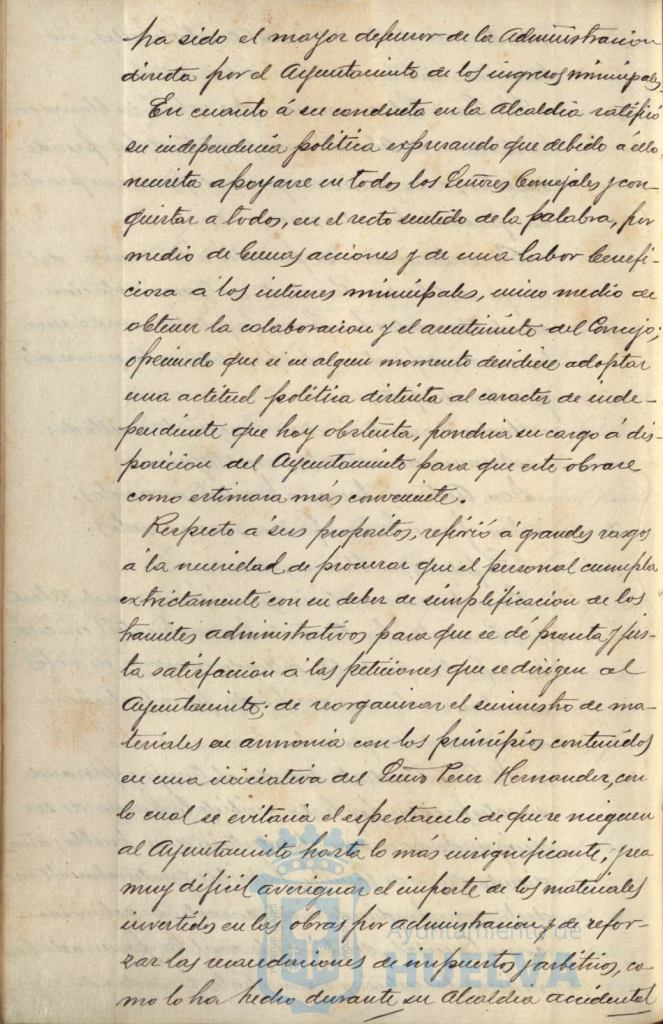 ha sido el mayor defensor de la Administracion
directa por el Ayuntamiento de los ingresos municipales.
En cuanto á su conducta en la Alcaldia ratificó
su independencia politica expresando que debido á ello
necesita apoyarse en todos los Señores Concejales y con-
quistar a todos, en el recto sentido de la palabra, por
medio de buenas acciones y de una labor benefi-
ciosa á los intereses municipales, unico medio de
obtener la colaboracion y el asentimiento del Concejo;
ofreciendo que si en algun momento decidiese adoptar
una actitud politica distinta al caracter de inde-
pendiente que hoy obstenta, pondria su cargo á dis-
posicion del Ayuntamiento para que este obrase
como estimara más conveniente.
Respecto á sus propósitos, refirió á grandes rasgos
á la necesidad de procurar que el personal cumpla
extrictamente con su deber de simplificacion de los
tramites administrativos para que se dé pronta y jus-
ta satisfacion á las peticiones que se dirigen al
Ayuntamiento; de reorganizar el suministro de ma-
teriales en armonia con los principios contenidos
en una iniciativa del Señor Perez Hernandez, con
lo cual se evitaria el espectaculo de que se nieguen
al Ayuntamiento hasta lo más insignificante, y sea
muy dificil averiguar el importe de los materiales
invertidos en las obras por administracion y de refor-
zar las recaudaciones de impuestos y arbitrios, co-
mo lo ha hecho durante su Alcaldia accidental
Ayuntamiento de
HUELVA